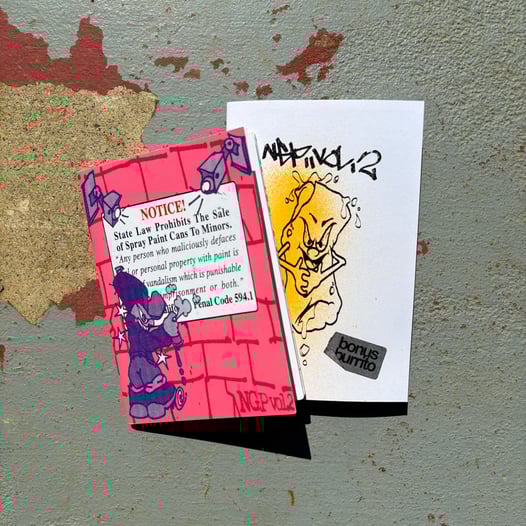 NOTICE!
State Law Prohibits The Sale
of Spray Paint Cans To Minors.
"Any person who maliciously defaces
or personal property with paint is
vandalism which is punishable
or both."
Penal Code 594.1
NGP vol.2
NGP vol.2
bonus
burrito